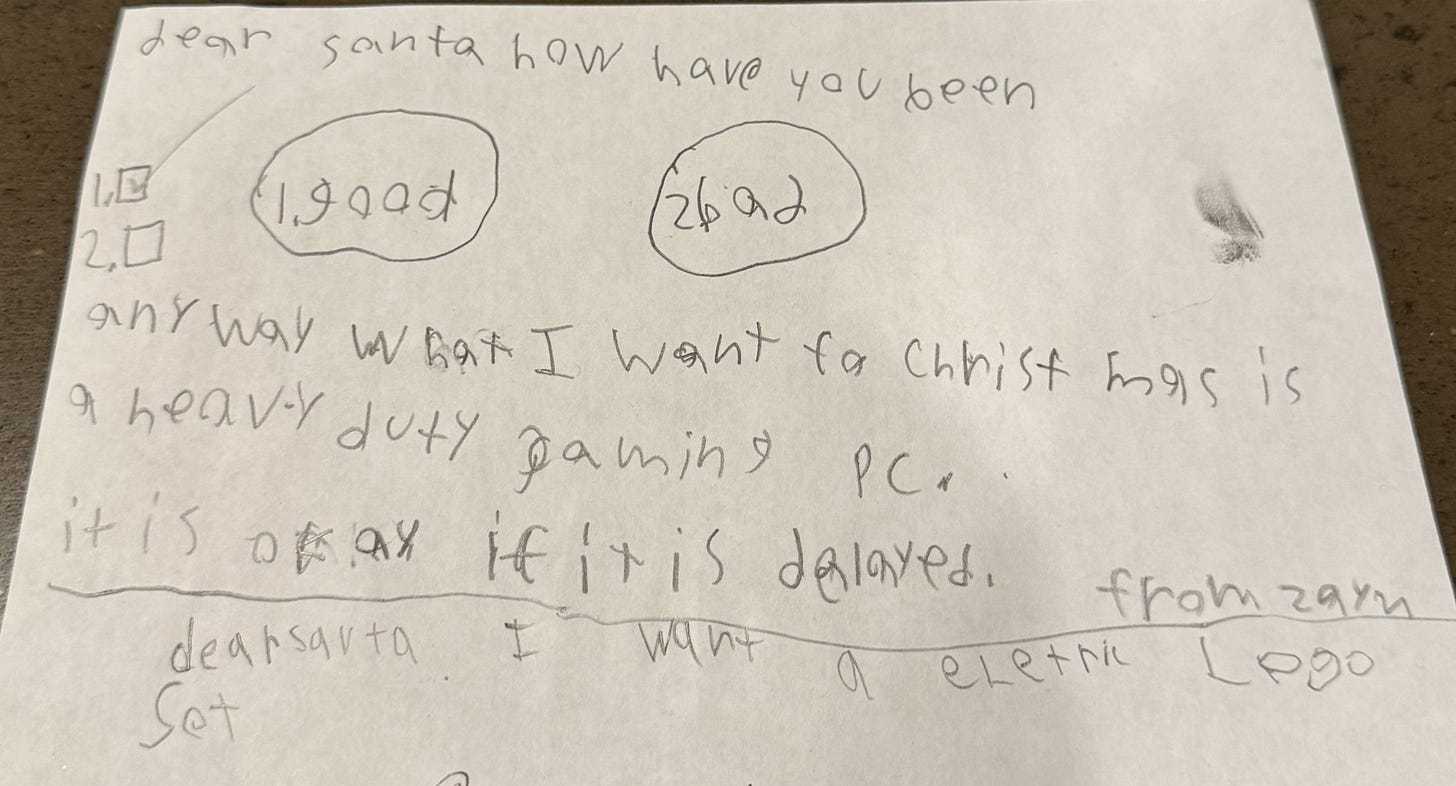 dear santa how have you been
1. 1.good 2bad
2.
any way what I want fo Christ mas is
a heavy duty gaming PC.
it is okay if it is delayed.
from zayn
dear santa I want a eletric Lego
Set